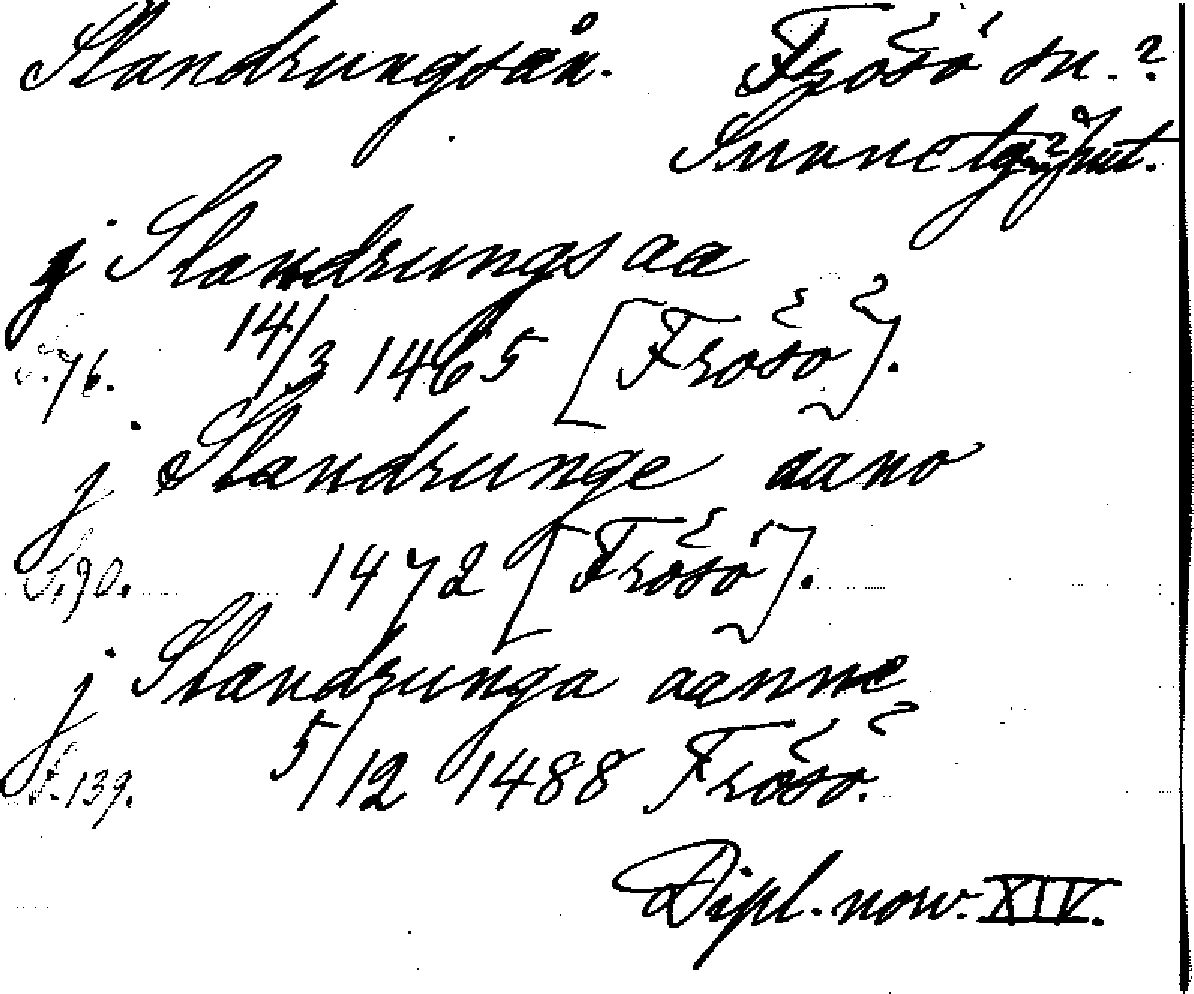 Slandrungsån. Frösö sn.?
Sunne tg.? Jmt.
j Slandrungsaa
S. 76. 14/3 1465 [Frösö].
j Slandrunge aano
S. 90. 1472 [Frösö].
j Slandrunga aanne
S. 139. 5/12 1488 Frösö.
Dipl. norv. XIV.